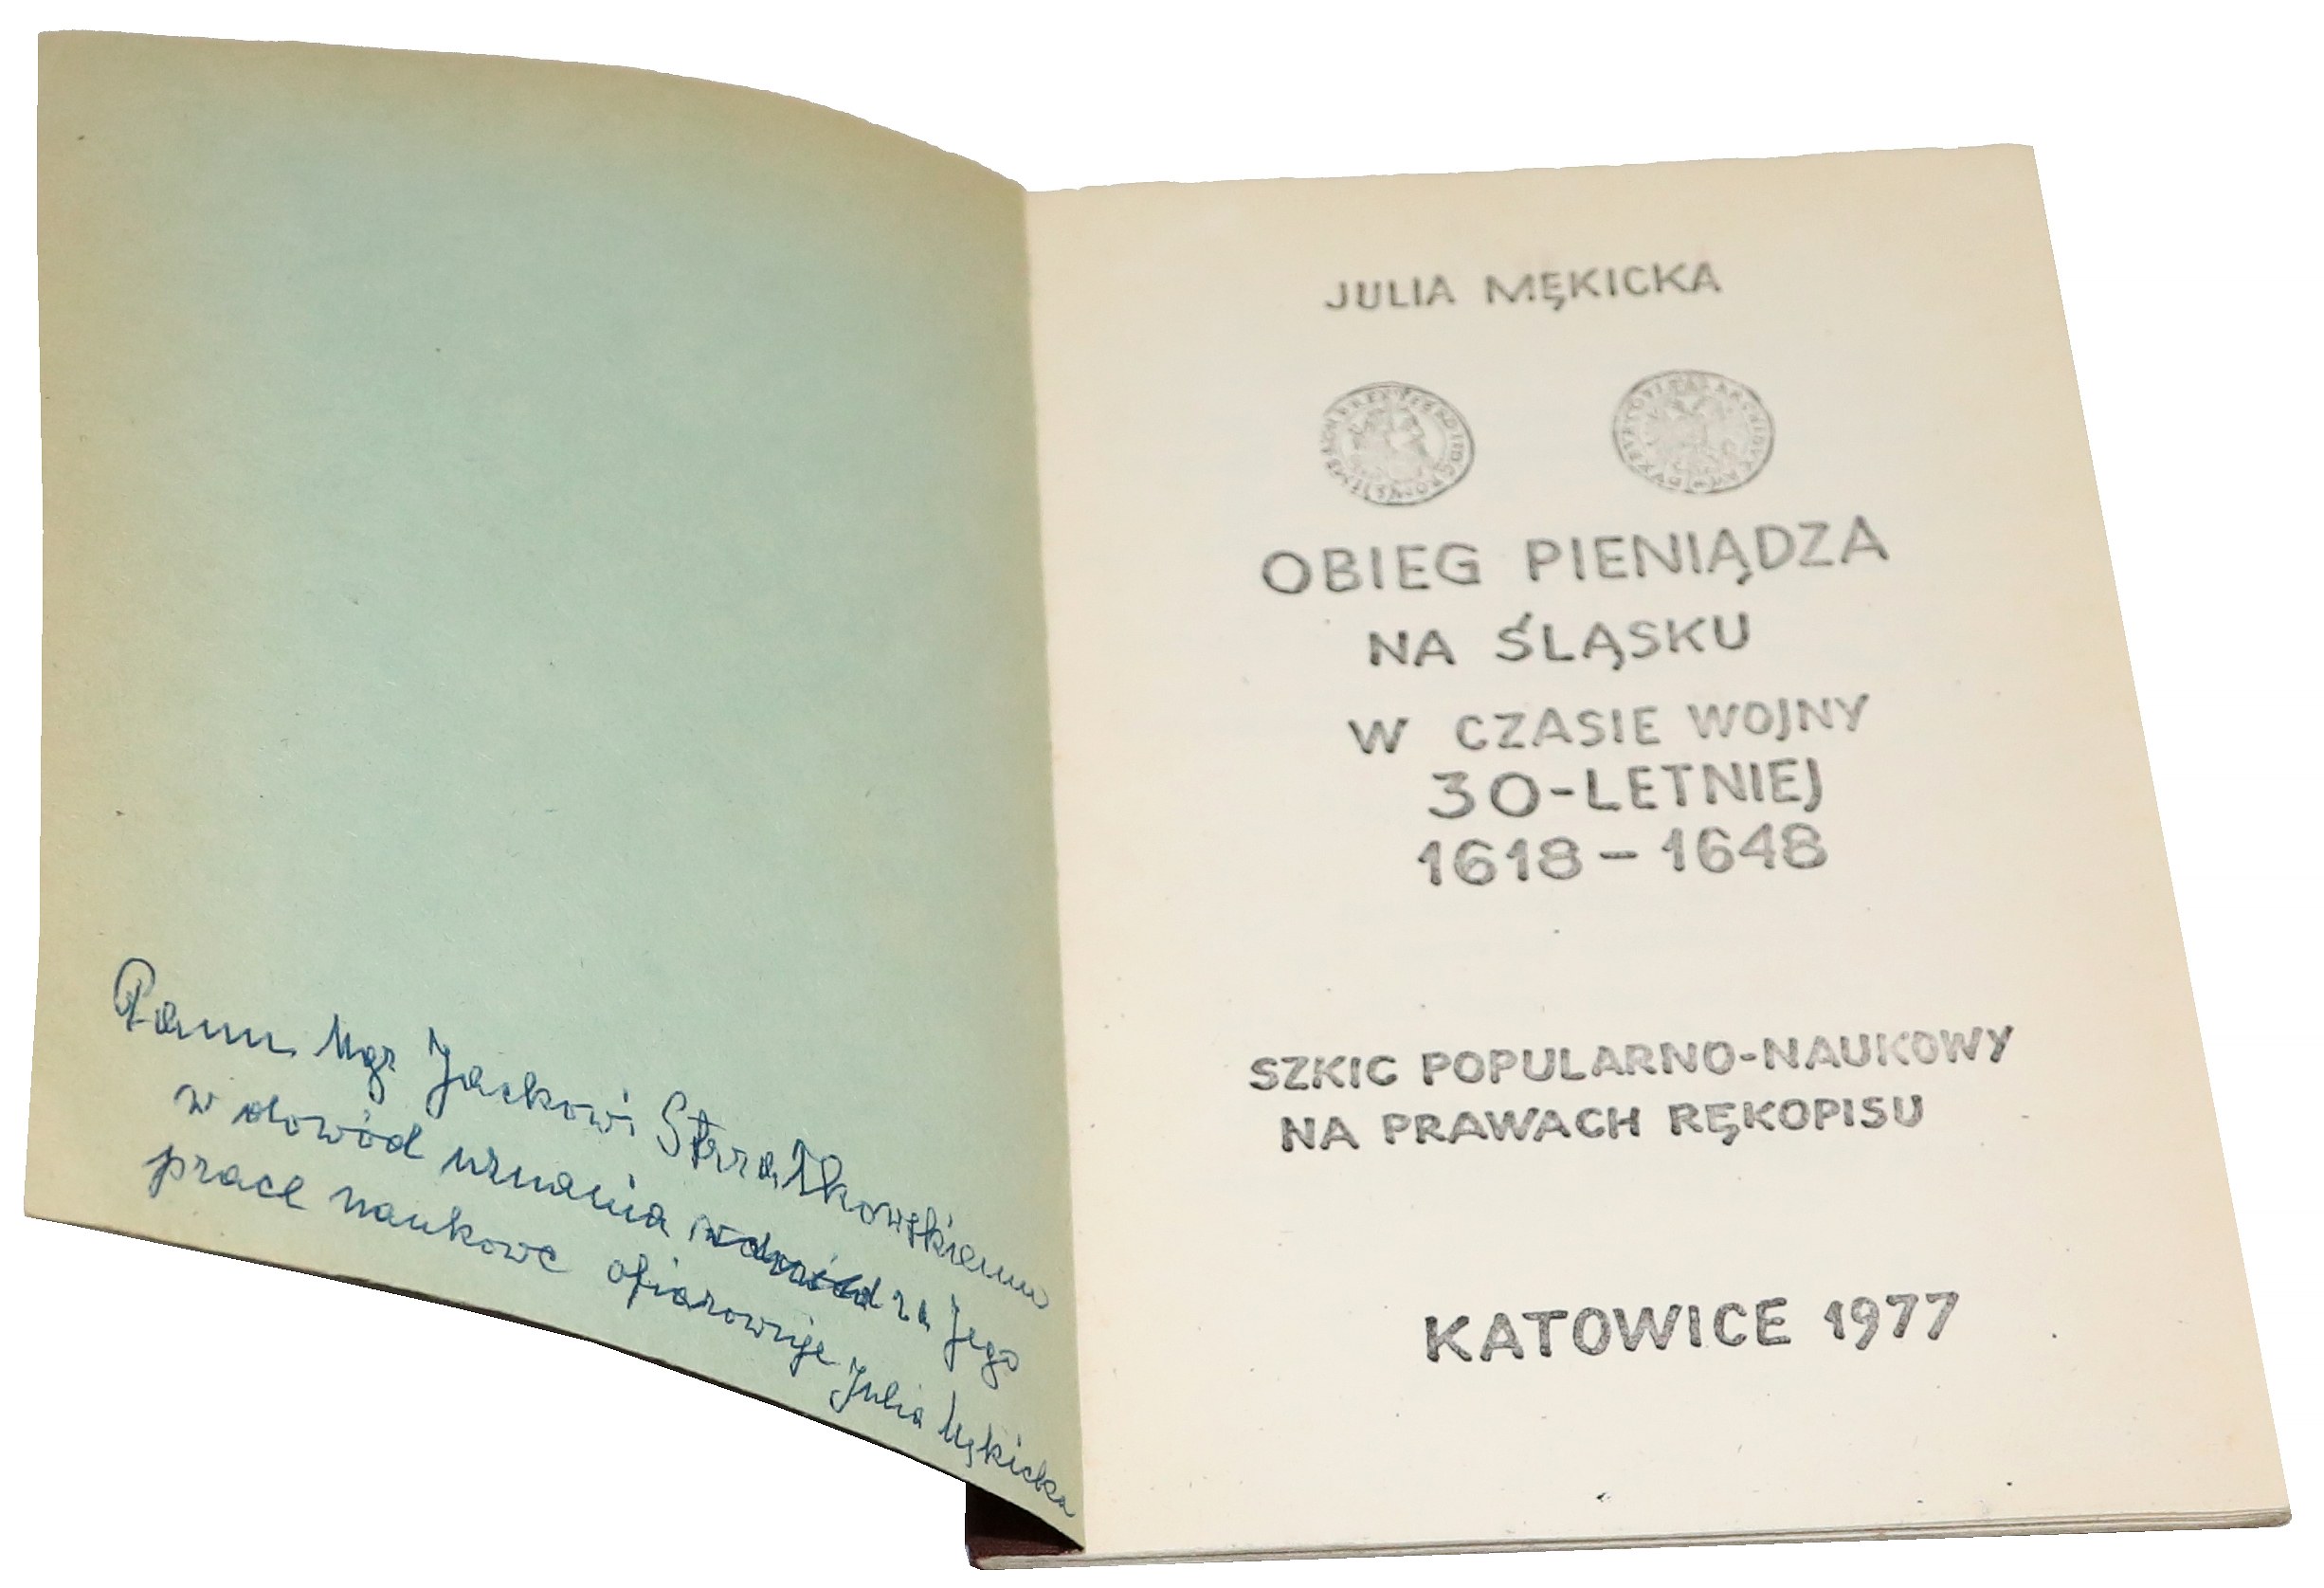 Panu Mgr Jackowi Strzałkowskiemu
w dowód uznania za Jego
prace naukowe ofiarowuje Julia Mękicka
JULIA MĘKICKA
OBIEG PIENIĄDZA
NA ŚLĄSKU
W CZASIE WOJNY
30-LETNIEJ
1618-1648
SZKIC POPULARNO-NAUKOWY
NA PRAWACH RĘKOPISU
KATOWICE 1977